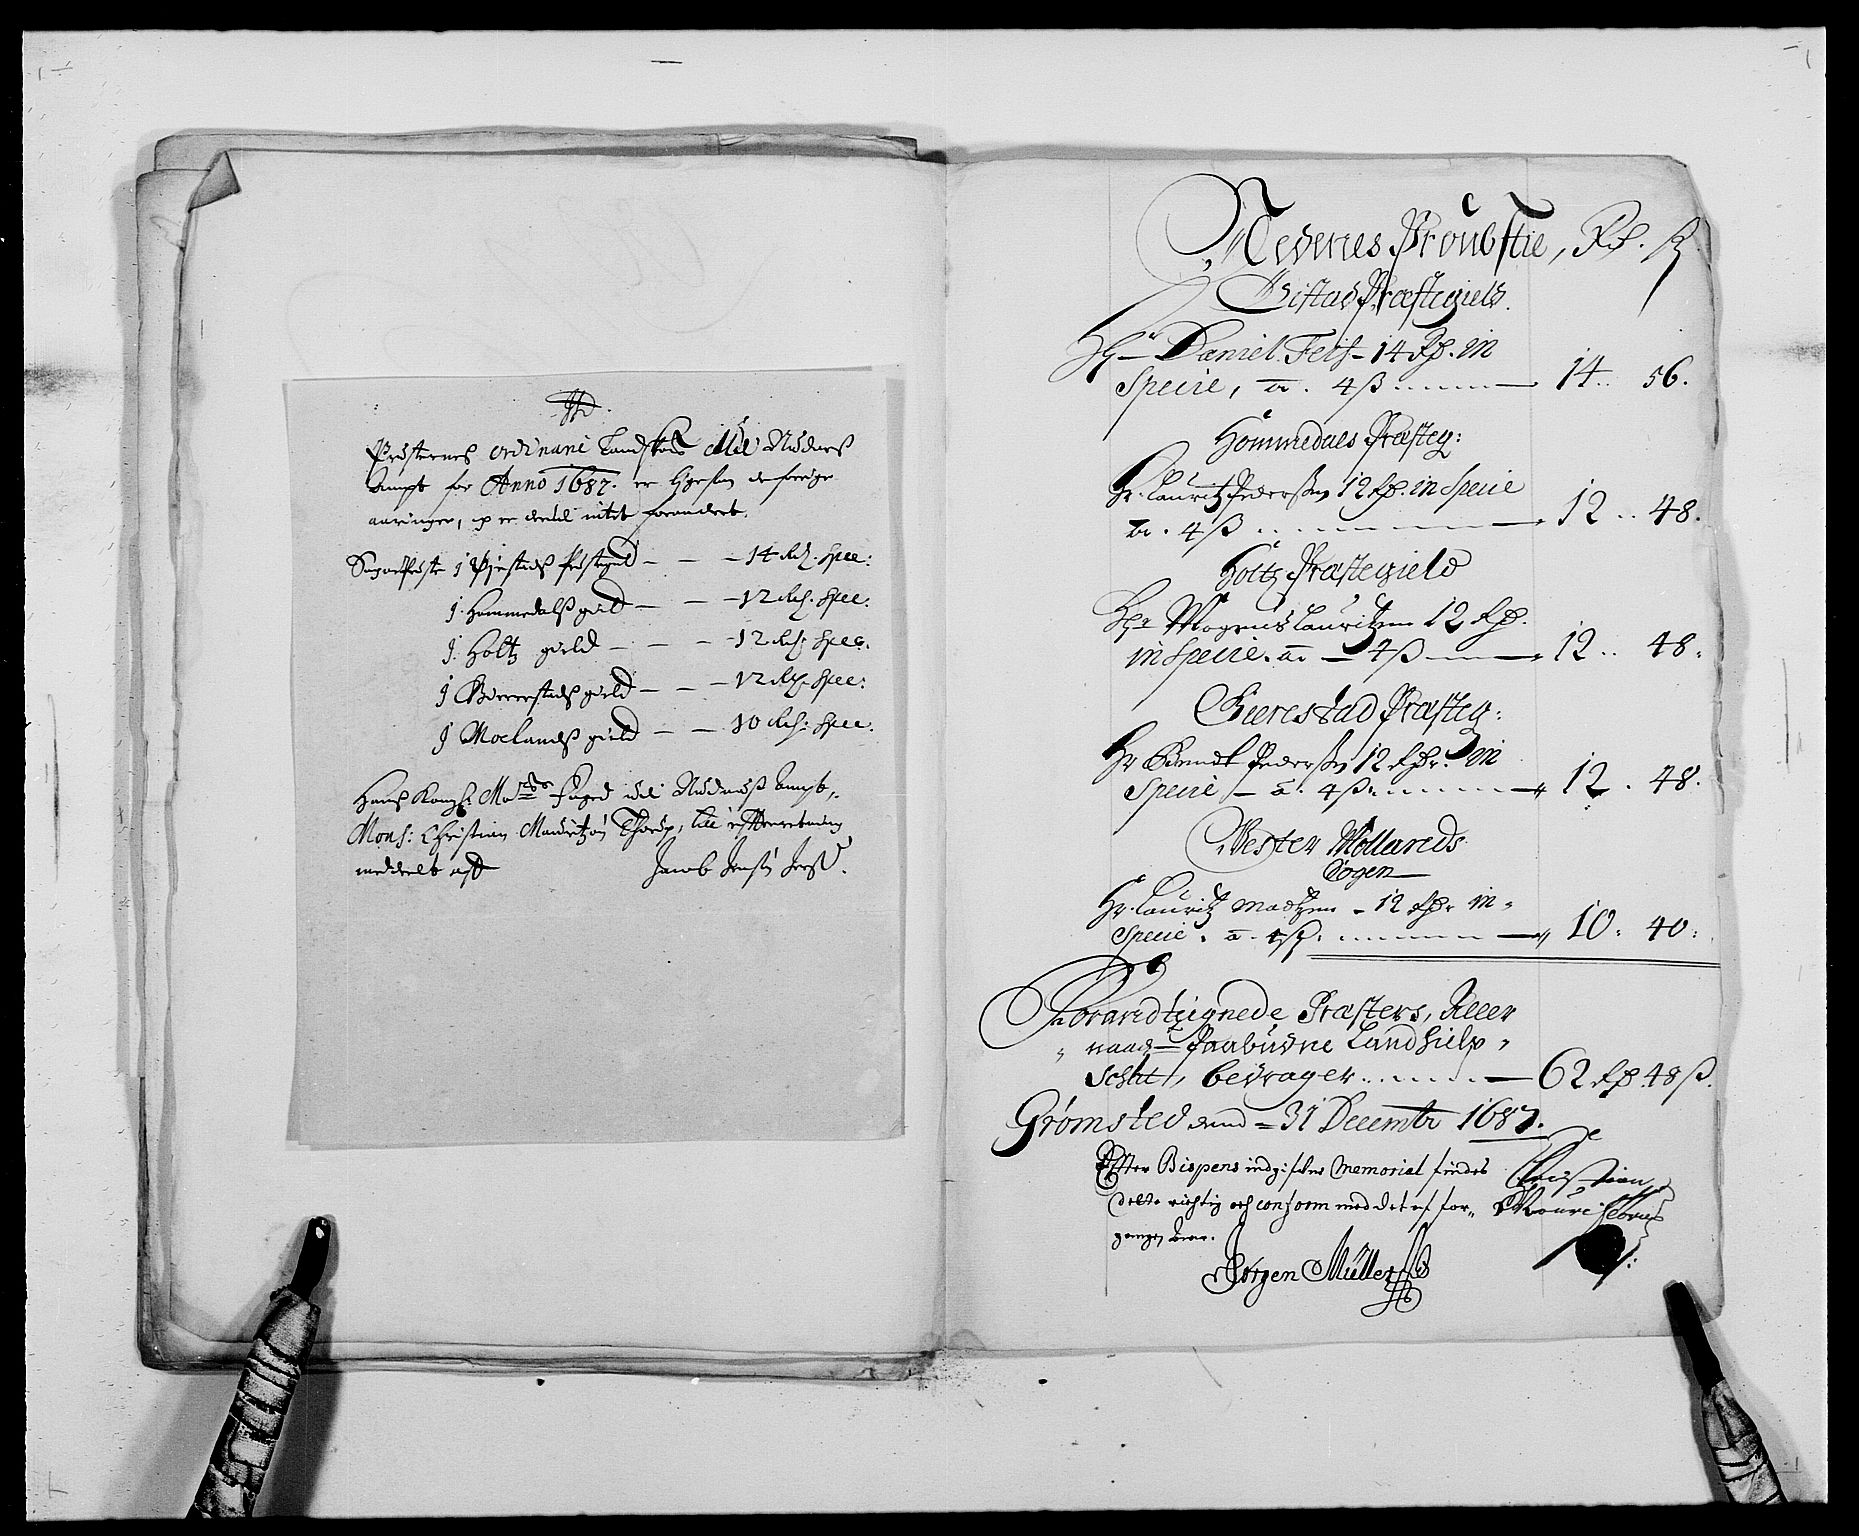 Presternes ordinarie Landskat udi Nedenes
Ampt for Anno 1687. er ligesom de forige
aaringer, og er derudi intet forandret.
SognePresten j Øjestads Prestegield — — 14 Rdl. Spec:
j. Hommedals gield — — 12 Rdl. Spec:
j. Holtz gield — — 12 Rdl. Spec.
j Gierrestads gield — — 12 Rdl. Spec:
j Molands gield — — 10 Rdl: Spec.
Hans Kongl. May.ts foged udi Nedenes Ampt,
Mons: Christian Mouritzøn Thorup, till effterretning
meddelt aff Jacob Jensøn
NedenesProubstie, Rd. ß
Øistad Præstegield.
Hr — Daniel Feif — 14 Rd. in
Specie, a. 4 ß — 14 .. 56.
Hommedals Præsteg:
Hr. Lauritz Pederßen 12 Rd. in Specie
a. 4 ß — 12 .. 48.
Holtz Præstegield
Hr Mogens Lauritzen 12 Rd.
in Specie. a — 4 ß — 12 .. 48.
Gierestad Præsteg:
Hr Bendt Pederßen 12 Rdr. in
Specie — a. 4 ß — 12 . 48.
Vester Mollands
Sogen
Hr. Lauritz Madtzen — 12 Rdr in
Specie. a. 4 ß. — 10: 40:
Forandteignede Præsters, Aller
naad — Paabudne Landhielp
Schat, bedrager — 62 Rd 48 ß.
Grømsted dend 31 Decembr 1687.
Effter Bispens indgifne Memorial findes
dette rigtig och conform med det af for
gangen Aar.
Christian
Mouri
Jørgen Müller